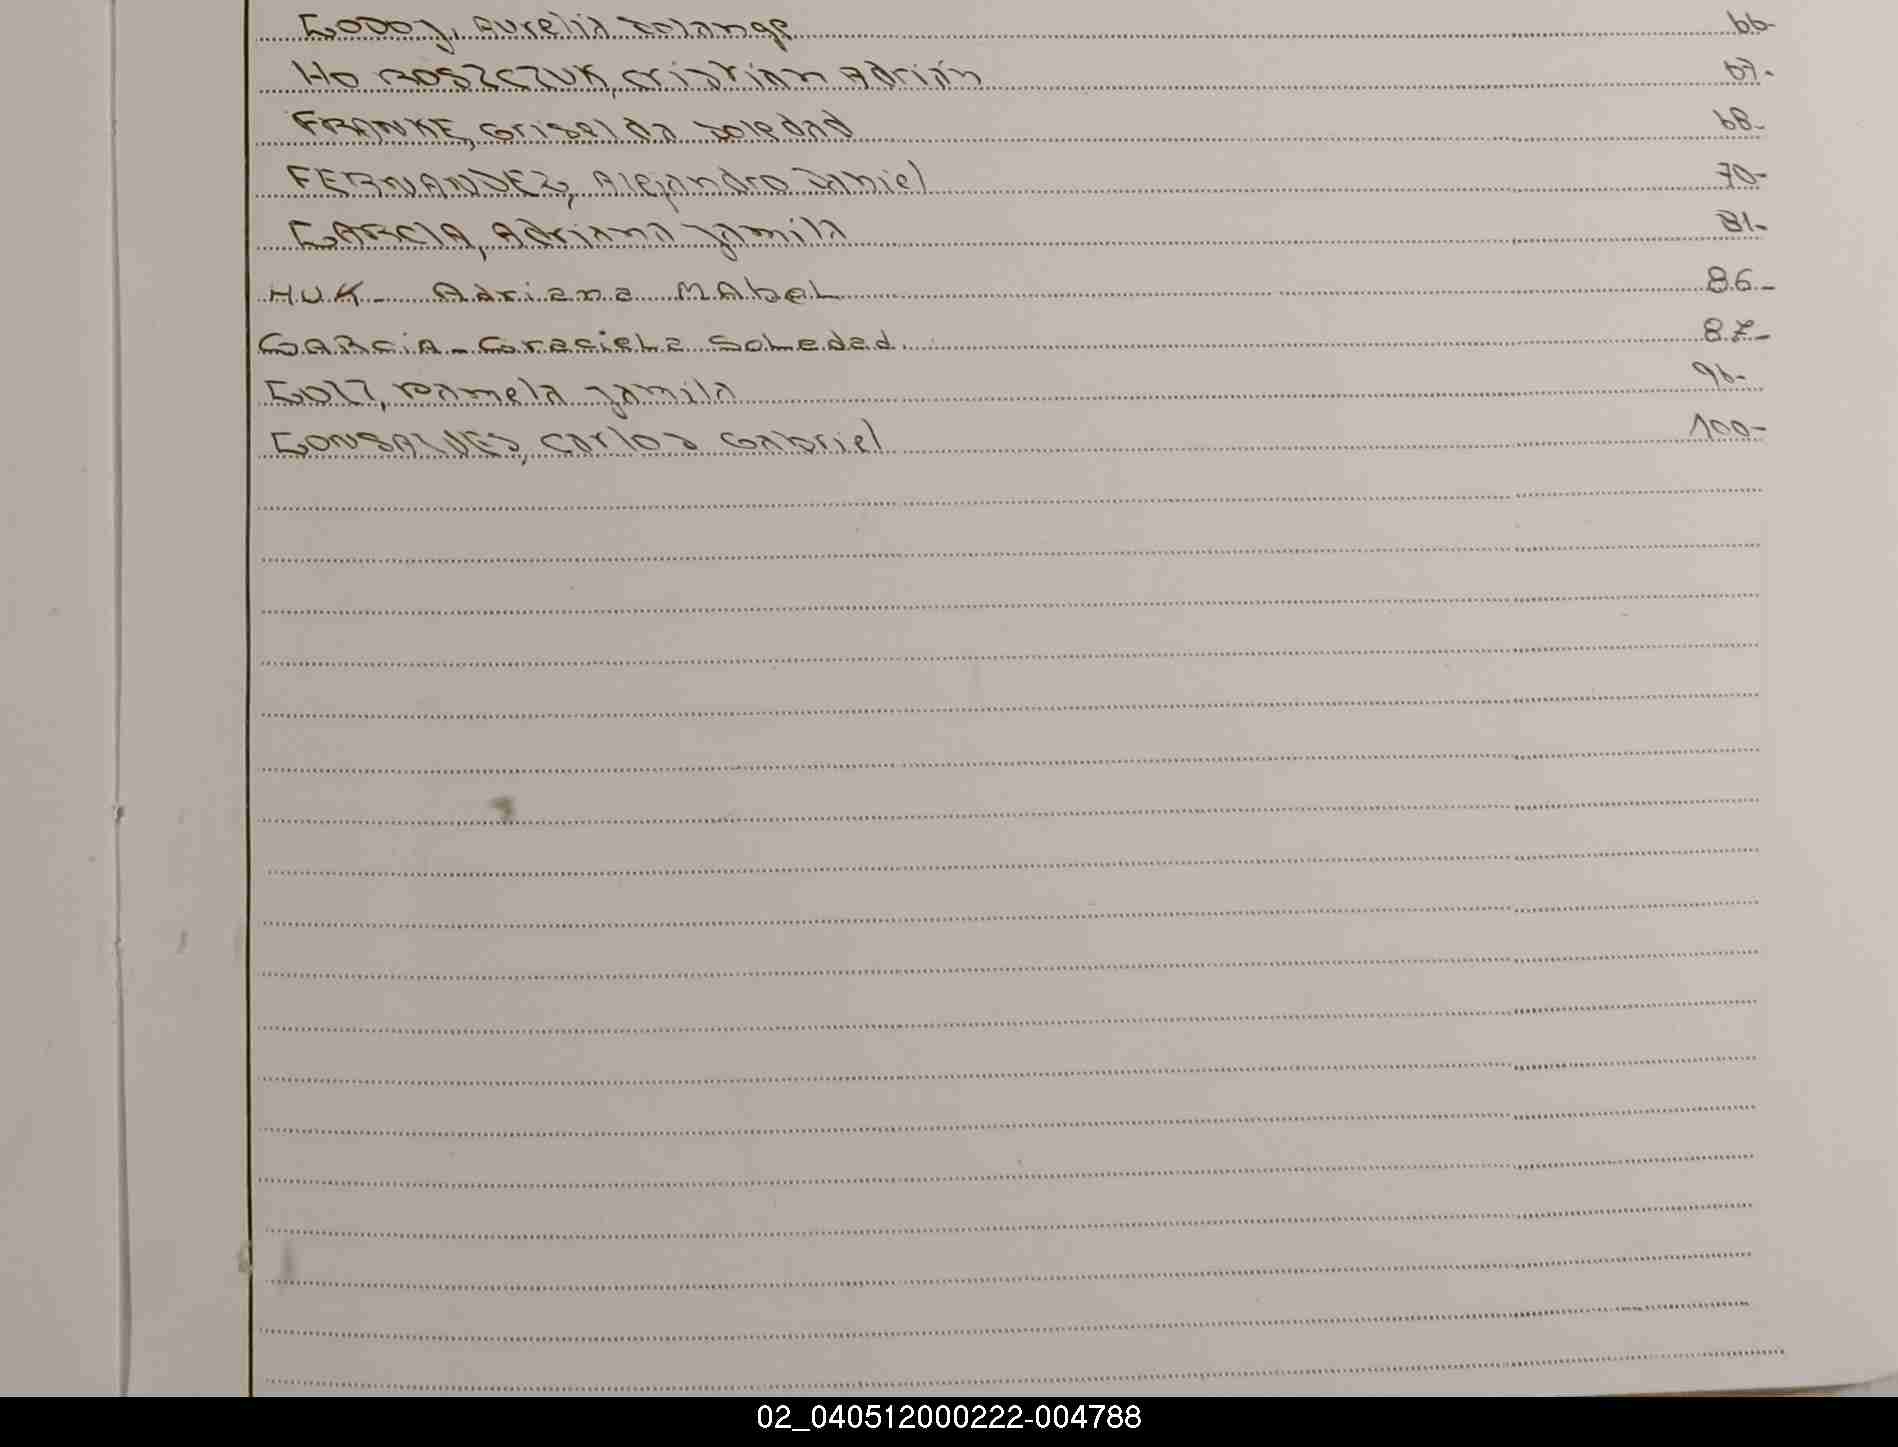 GODOY, Aurelia Solange 66-
HOROSZCZUK, Cristian Adrián 67-
FRANKE, Griselda Soledad 68-
FERNANDEZ, Alejandro Daniel 70-
GARCIA, Adriana Yamila 81-
HUK- Adriana MAbeL 86-
GARCiA- GracieLa SoLedad 87-
GOTZ, Pamela Yamila 96-
GONSALVES, Carlos Gabriel 100-
02_040512000222-004788